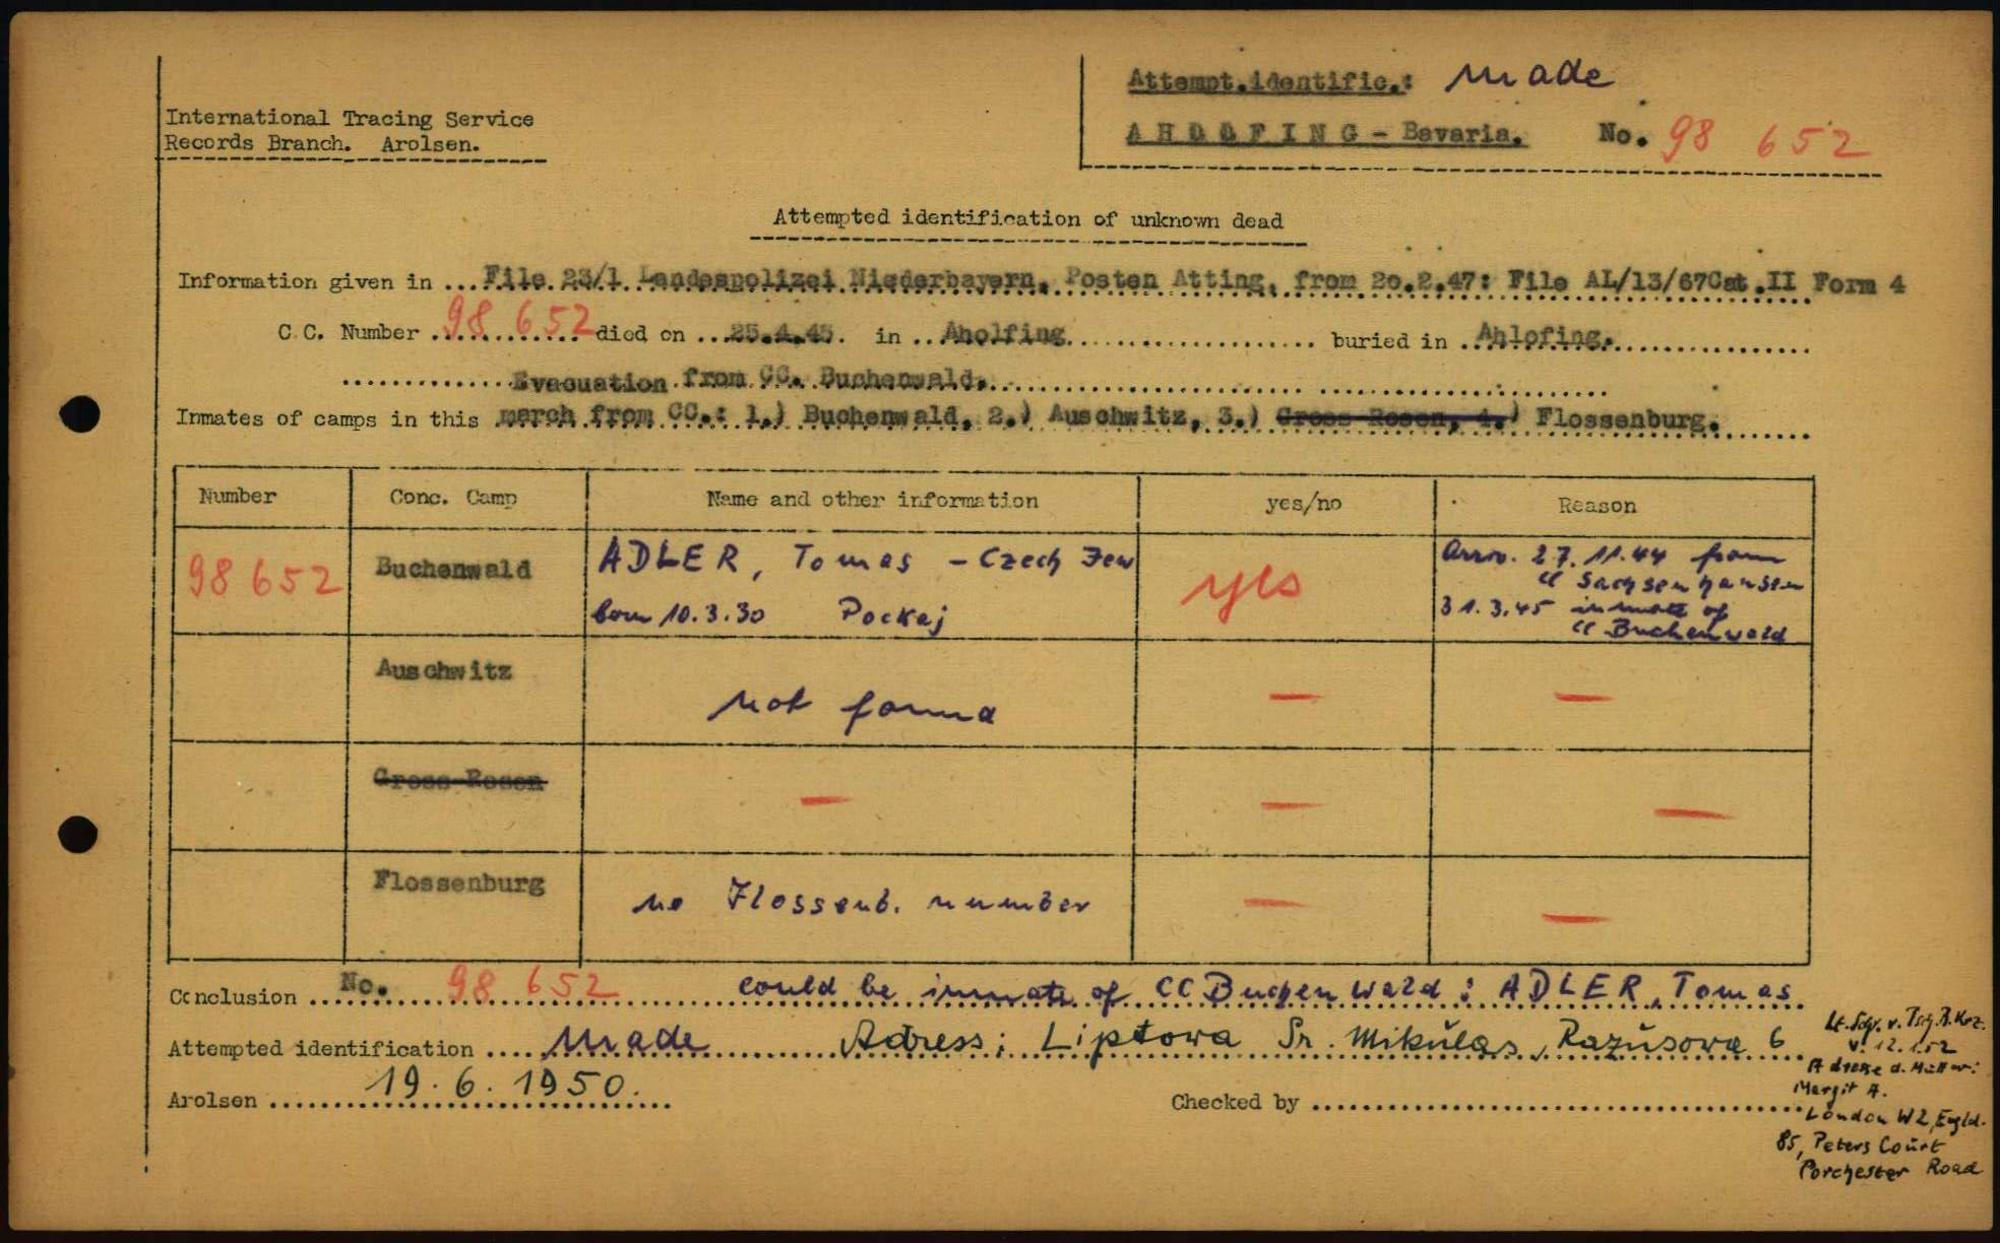 Attempt.identific.: made
International Tracing Service
Records Branch. Arolsen.
AHOLFING - Bavaria. No. 98 652
Attempted identification of unknown dead
Information given in ...File 23/1 Landespolizei Niederbayern, Posten Atting, from 20.2.47: File AL/13/67Cat.II Form 4
C.C. Number 98 652 died on ...25.4.45. in ..Aholfing.................... buried in ..Ahlofing.................
.............Evacuation from CC. Buchenwald...............................................
Inmates of camps in this march from CC.: 1.) Buchenwald, 2.) Auschwitz, 3.) Gross Rosen, 4.) Flossenburg.........
Number Conc. Camp Name and other information yes/no Reason
98 652 Buchenwald ADLER, Tomas - Czech Jew yes Arriv. 27.11.44 from
CC Sachsenhausen
born 10.3.30 Pockaj 31.3.45 inmate of
CC Buchenwald
Auschwitz not found — —
Gross Rosen — — —
Flossenburg no Flossenb. number — —
Conclusion ...No. 98 652 could be inmate of CC Buchenwald: ADLER, Tomas
Attempted identification ....made Adress: Liptova Sv. Mikúlas, Razúsova 6
Arolsen 19.6.1950.
Checked by ........................................
Lt. Schr. v. Tsch.R.Krz.
v. 12.1.52
Adresse d. Mutter:
Margit A.
London W2, Engld.
85, Peters Court
Porchester Road